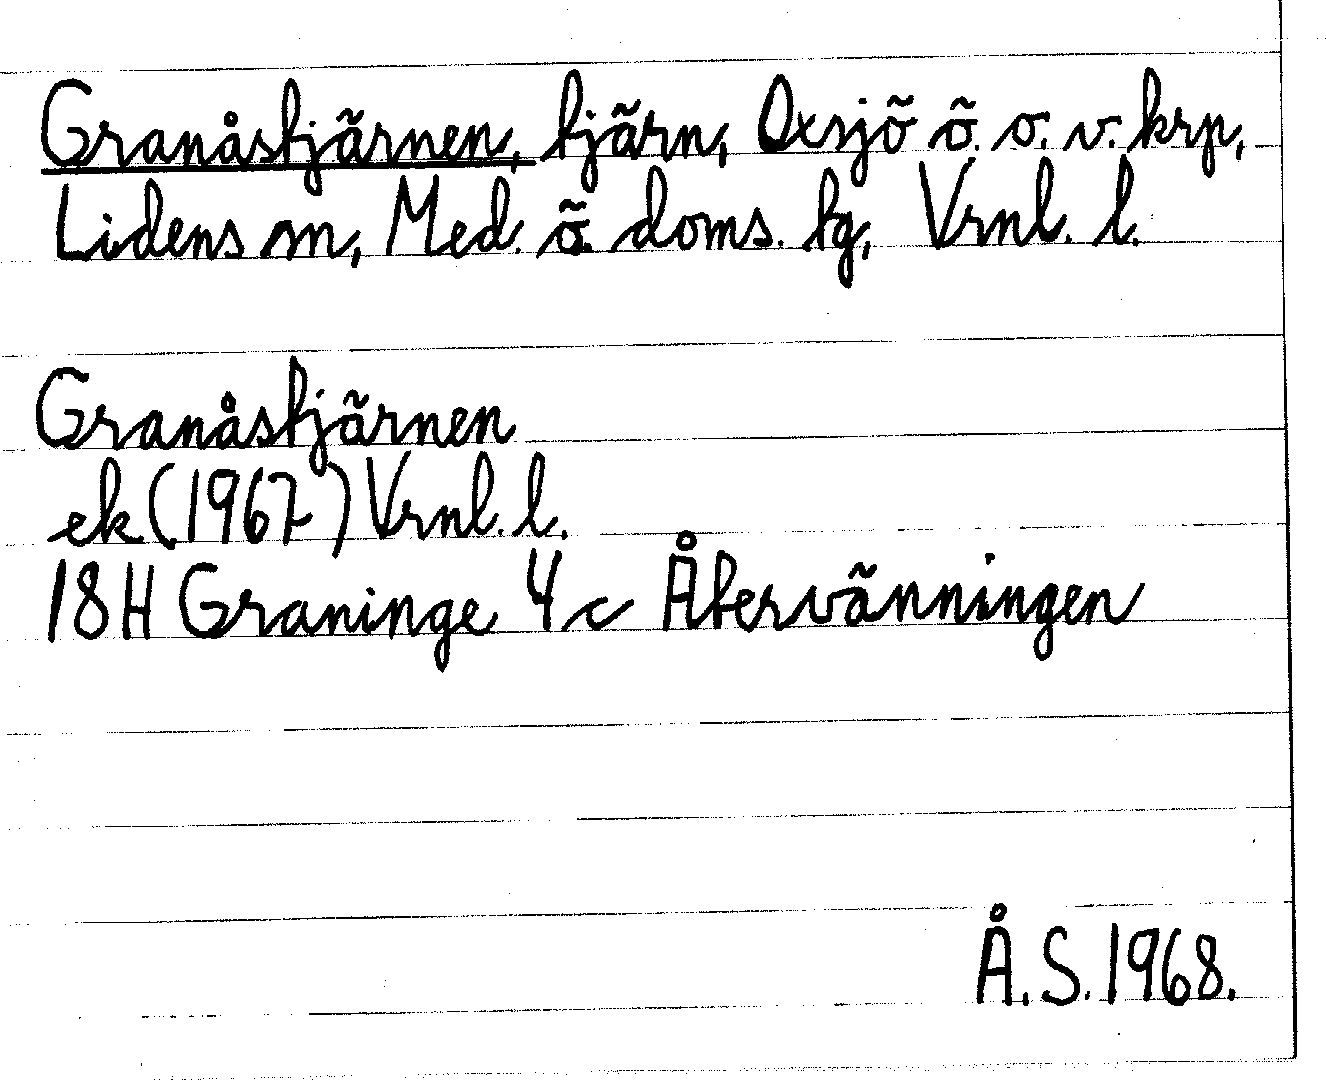 Granåstjärnen, tjärn, Oxsjö ö. o. v. krp,
Lidens sn, Med. ö. doms. tg, Vrnl. l.
Granåstjärnen
ek (1967) Vrnl. l.
18H Graninge 4c Återvänningen
Å.S. 1968.